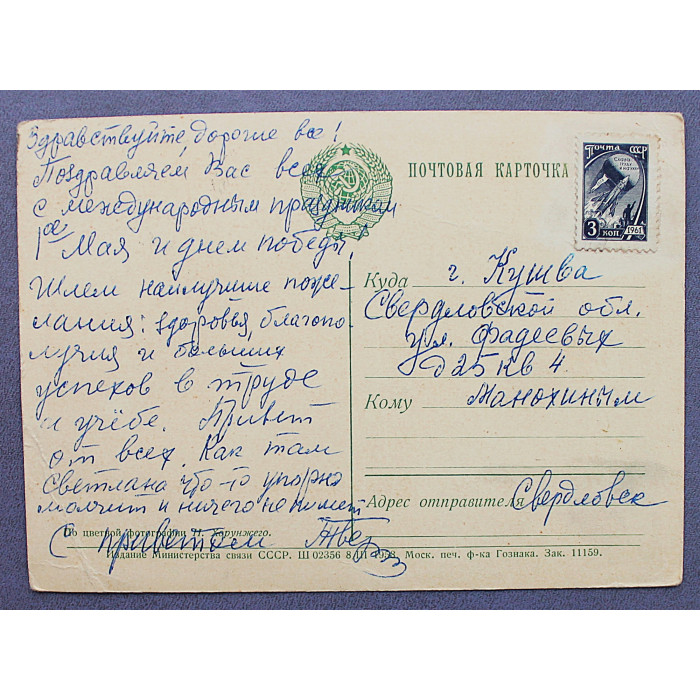 Здравствуйте, дорогие все!
Поздравляем Вас всех
с международным праздником
1ое Мая и днем победы.
Шлем наилучшие поже-
лания: здоровья, благопо-
лучия и больших
успехов в труде
и учёбе. Привет
от всех. Как там
Светлана что-то упорно
молчит и ничего не пишет
С приветом
По цветной фотографии П. Хорунжего.
Издание Министерства связи СССР. Ш 02356 8/III 1958. Моск. печ. ф-ка Гознака. Зак. 11159.
ПОЧТОВАЯ КАРТОЧКА
Почта СССР
3 коп. 1961
Куда г. Кушва
Свердловской обл.
ул. Фадеевых
д 25 кв 4
Кому Манохиным
Адрес отправителя Свердловск